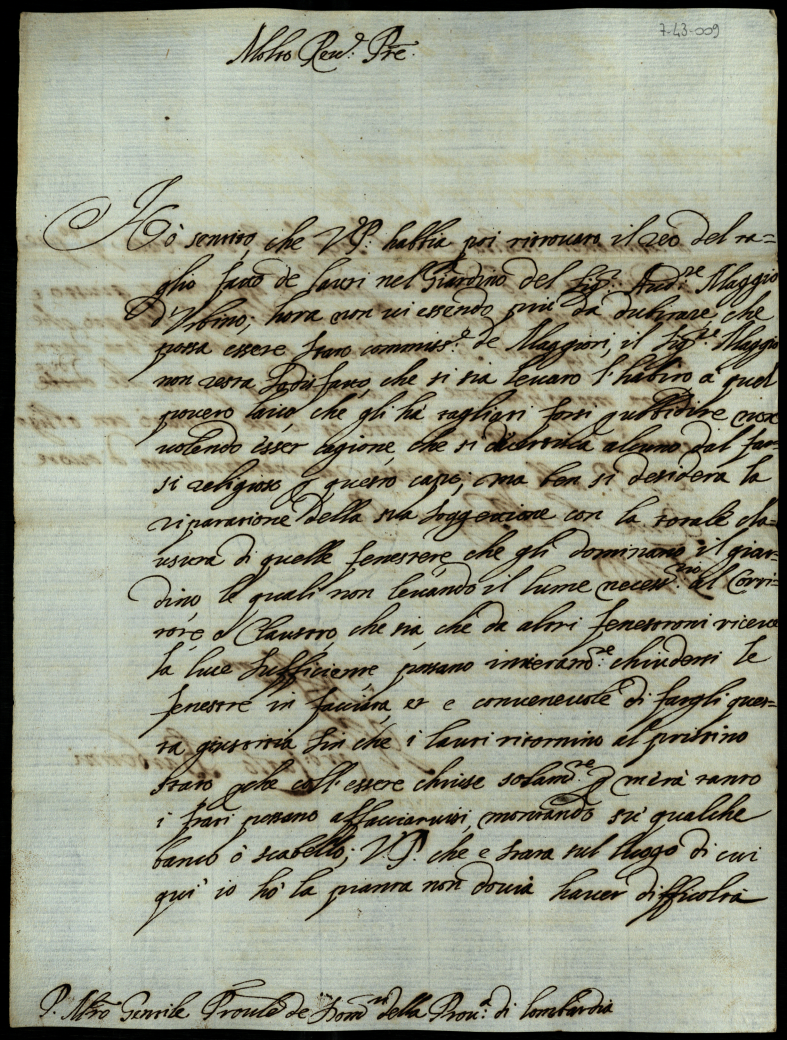 7-43-009
Molto Rev.do P're.
Hò sentito che V.P. habbia poi ritrovato il reo del ta=
glio fatto de lauri nel Giardino del Sig.r And.re Maggio
d'Urbino; hora non vi essendo più da dubitare che
possa essere stato commiss.e de Maggiori, il Sig.re Maggio
non resta sodisfatto, che si sia levato l'habito a quel
povero laico che gli hà tagliati forsi p ubbidire non
volendo esser cagione, che si alcuno dal far=
si religioso p questo capo; ma ben si desidera la
riparatione della sua soggettione con la totale clau=
usura di quelle fenestre che gli dominano il giar=
dino le quali non levando il lume necess.rio al Corri=
tore ò Claustro, che sia, che da altri fenestroni riceve
la luce sufficiente, possano interam.te chiudersi le
fenestre in facciata et è convenevole di fargli ques=
ta giustitia sin che i lauri ritornino al pristino
stato pche coll'essere chiuse solam.te p metà tanto
i frati possano affacciarvisi montando sù qualche
banco ò scabello; V.P. che è stata sul luogo di cui
quì io hò la pianta non dovrà haver difficoltà
P. M'ro Gentile P'ro'nle de della Prov.a di lombardia